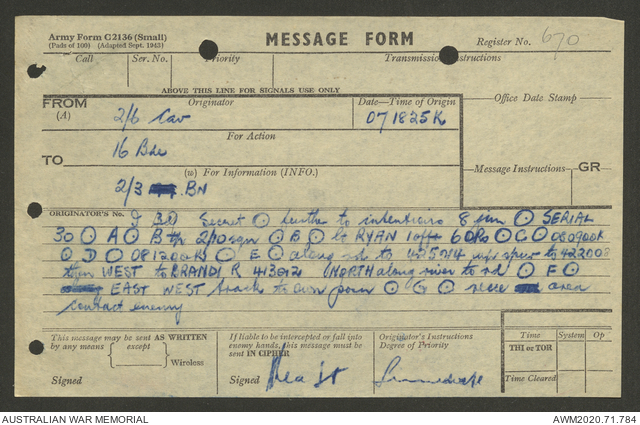 Army Form C2136 (Small)
(Pads of 100) (Adapted Sept. 1943)
MESSAGE FORM
Register No. 670
Call Ser. No. Priority Transmission Instructions
ABOVE THIS LINE FOR SIGNALS USE ONLY
FROM Originator Date—Time of Origin Office Date Stamp
(A) 2/6 Cav 071825K
For Action
TO 16 Bde
(w) For Information (INFO.) Message Instructions GR
2/3 BN
ORIGINATOR'S No. Secret to intentions 8 Jun SERIAL
30 A B Tp 2/10 sqn B Lt RYAN 1 offr 6 ORs C 080900K
D 081200K E along rd to 425014 up spur to 422008
then WEST to BRANDI R 413012 NORTH along river to rd F
EAST WEST track to own posn G recce area
contact enemy
This message may be sent AS WRITTEN
by any means except
Wireless
Signed
If liable to be intercepted or fall into
enemy hands, this message must be
sent IN CIPHER
Signed
Originator's Instructions
Degree of Priority
Time System Op
THI or TOR
Time Cleared
AUSTRALIAN WAR MEMORIAL AWM2020.71.784